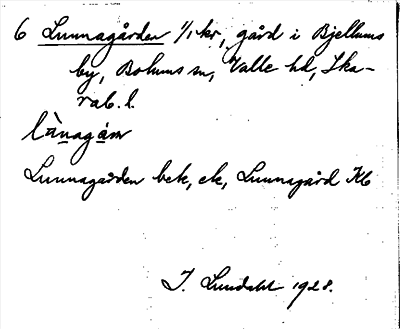 6 Lunnagården 1/1 kr, gård i Bjellums
by, Bolums sn, Valle hd, Ska-
rab. l.
Lunnagården bek, ek, Lunnagård Kb
I. Lundahl 1928.